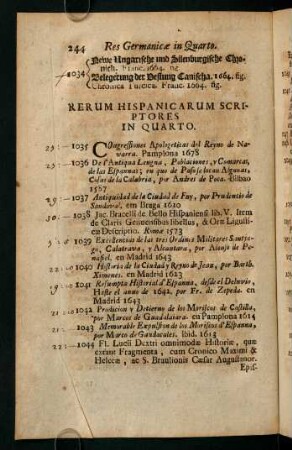 244 Res Germanicæ in Quarto.
Newe Ungarische und Sibenburgische Chronick. Franc. 1664. fig
1034 Belegerung der Vestung Canischa. 1664. fig.
Chronica Turcica Franc. 1664. fig.
RERUM HISPANICARUM SCRIPTORES
IN QUARTO.
1035 COngressiones Apologeticas del Reyno de Navarra.
Pamplona 1678
1036 De l'Antiqua Lengua, Poblaciones, y Comarcas,
de las Espannas, en que de Paso se tocan Algunas
Cosas de la Calabria, por Andres de Poca. Bilbao
1587
1037 Antiquidad de la Ciudad de Tuy, por Prudencio de
Sandoval. em Braga 1610
1038 Jac. Bracelli de Bello Hispaniensi lib. V. Item
de Claris Genuensibus libellus, & Oræ Ligusticæ
Descriptio. Romæ 1573
1039 Excellencias de las tres Ordenes Militares Santjago,
Calatrava, y Alcantara, por Alonso de Pennafiel,
en Madrid 1643
1040 Historia de la Ciudad y Reyno de Jean, por Barth.
Ximenes. en Madrid 1623
1041 Resumpta Historial d'Espanna, desde el Deluvio,
Haste el anno de 1642. por Fr. de Zepeda. en
Madrid 1643
1042 Prodicion y Destierro de los Moriscos de Castilla,
por Marcos de Guadalaiara. en Pamplona 1614
1043 Memorable Expulsion de los Moriscos d'Espanna,
por Marco de Guadaraxes. Ibid. 1613
1044 Fl. Lucii Dextri omnimodæ Historiæ, quæ
extant Fragmenta, cum Cronico Maximi &
Helecæ, ac S. Braulionis Cæsar Augustanor.
Epis-